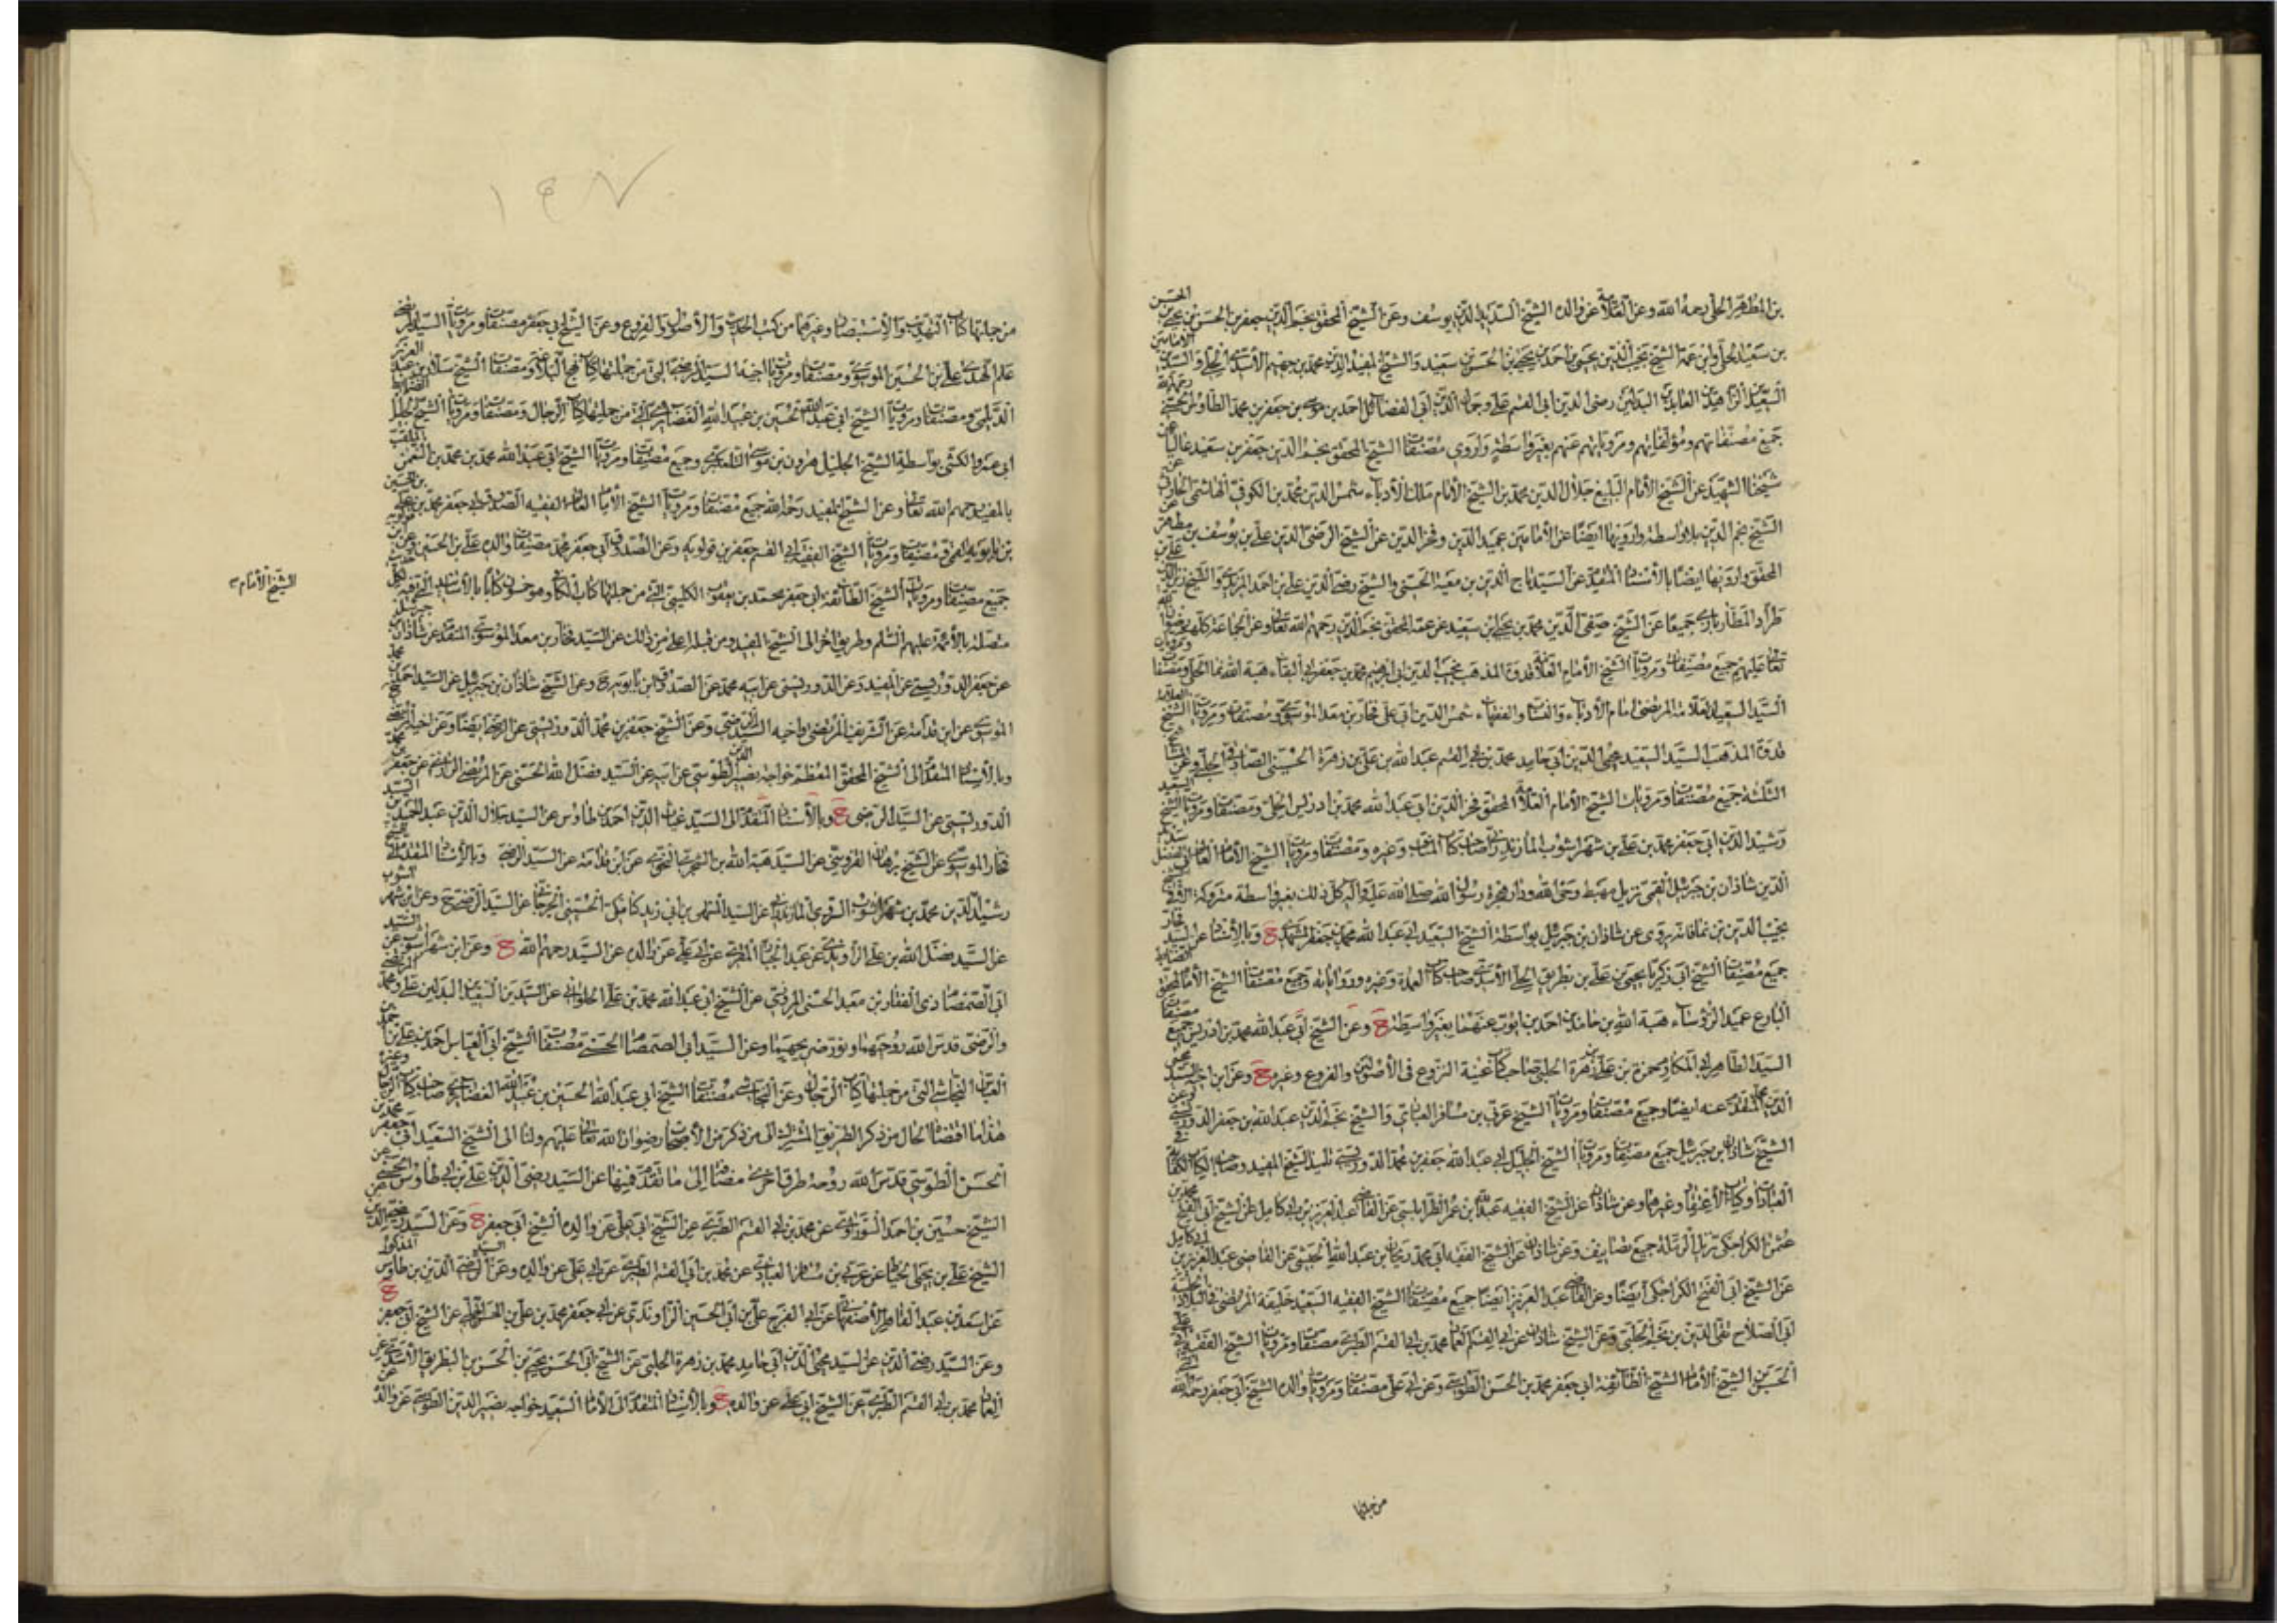 بن المطهر الحلي رحمه الله وعن العلامة عن والده الشيخ السديد الدين يوسف وعن الشيخ المحقق نجم الدين جعفر بن الحسن بن يحيى الحسن
بن سعيد الحلي وابن عمه الشيخ نجيب الدين يحيى بن احمد بن يحيى بن الحسن بن سعيد والشيخ المفيد الدين محمد بن جهيم الأسدي الحلي والسيدين الامامين
السعيدين الزاهدين العابدين البدلين رضي الدين ابي القسم علي وجمال الدين ابي الفضائل احمد بن موسى بن جعفر بن محمد الطاوس
جميع مصنفاتهم ومؤلفاتهم ومروياتهم عنهم بغير واسطة واروي مصنفات الشيخ المحقق نجم الدين جعفر بن سعيد عاليا عن
شيخنا الشهيد عن الشيخ الامام البليغ جلال الدين محمد بن الشيخ الامام ملك الأدباء شمس الدين محمد بن الكوفي الهاشمي الحارثي عن
الشيخ نجم الدين بلا واسطة وارويها ايضا عن الامامين عميد الدين وفخر الدين عن الشيخ الرضي الدين علي بن يوسف بن مطهر عن
المحقق وارويها ايضا بالأسناد المتقدم عن السيد تاج الدين بن معية الحسني والشيخ رضي الدين علي بن احمد المزيدي والشيخ زين الدين علي بن
طراد المطارباذي جميعا عن الشيخ صفي الدين محمد بن يحيى بن سعيد عن عمه المحقق نجم الدين رحمهم الله تعالى وعن الجماعة كلهم رضوان الله
تعالى عليهم جميع مصنفات ومرويات الشيخ الامام العلامة قدوة المذهب نجيب الدين ابي ابرهيم محمد بن جعفر بن ابي البقاء هبة الله نما الحلي ومصنفات ومرويات
السيد السعيد العلامة المرتضى امام الأدباء والنساب والفقهاء شمس الدين ابي علي فخار بن معد الموسوي ومصنفات ومرويات الشيخ العلامة
قدوة المذهب السيد السعيد محيي الدين ابي حامد محمد بن ابي القسم عبد الله بن علي بن زهرة الحسيني الصادقي الحلبي وعن المشايخ
الثلثة جميع مصنفات ومرويات الشيخ الامام العلامة المحقق فخر الدين ابي عبد الله محمد بن ادريس الحلي ومصنفات ومرويات الشيخ السعيد
رشيد الدين ابي جعفر محمد بن علي بن شهراشوب المازندراني صاحب كتاب المناقب وغيره ومصنفات ومرويات الشيخ الامام العالم
الدين شاذان بن جبرئيل القمي نزيل مهبط وحي الله ودار هجرة رسول الله صلى الله عليه وآله كل ذلك بغير واسطة متروكة
نجيب الدين بن نما فانه يروي عن شاذان بن جبرئيل بواسطة الشيخ السعيد ابي عبد الله محمد بن جعفر المشهدي وبالأسناد عن السيد فخار
جميع مصنفات الشيخ ابي زكريا يحيى بن علي بن بطريق الحلي الأسدي صاحب كتاب العمدة وغيره ورواياته وجميع مصنفات الشيخ الامام المحقق
البارع عميد الرؤساء هبة الله بن حامد بن احمد بن ايوب عنهما بغير واسطة وعن الشيخ ابي عبد الله محمد بن ادريس جميع مصنفات
السيد الطاهر ابي المكارم حمزة بن علي زهرة الحلبي صاحب كتاب غنية النزوع في الأصولين والفروع وغيره وعن ابن اخيه السيد محيي
الدين محمد المتقدم عنه ايضا وجميع مصنفات ومرويات الشيخ عربي بن مسافر العبادي والشيخ نجم الدين عبد الله بن جعفر الدوريستي وعن
الشيخ شاذان بن جبرئيل جميع مصنفات ومرويات الشيخ الجليل ابي عبد الله جعفر بن محمد الدوريستي تلميذ الشيخ المفيد وصاحب الكتاب الكفاية في
العبادات وكتاب الأعتقاد وغيرهما وعن شاذان عن الشيخ الفقيه عبد الله بن عمر الطرابلسي عن القاضي عبد العزيز بن ابي كامل عن الشيخ ابي الفتح محمد بن
عثمن الكراجكي نزيل الرملة جميع تصانيفه وعن شاذان عن الشيخ الفقيه ابي محمد ريحان بن عبد الله الحبشي عن القاضي عبد العزيز بن ابي كامل
عن الشيخ ابي الفتح الكراجكي ايضا وعن القاضي عبد العزيز ايضا جميع مصنفات الشيخ الفقيه السعيد خليفة المرتضى في البلاد الحلبية
ابي الصلاح تقي الدين بن نجم الحلبي وعن الشيخ شاذان عن ابي القسم العماد محمد بن ابي القسم الطبري مصنفات ومرويات الشيخ الفقيه ابي علي
الحسن بن الشيخ الامام الشيخ الطائفة ابي جعفر محمد بن الحسن الطوسي وعن ابي علي مصنفات ومرويات والده الشيخ ابي جعفر رحمه الله
من جملتها
١٤٧
من جملتها كتاب التهذيب والاستبصار وغيرهما من كتب الحديث والأصول والفروع وعن الشيخ ابي جعفر مصنفات ومرويات السيد المرتضى
علم الهدى علي بن الحسين الموسوي ومصنفات ومرويات اخيه السيد الرضي التي من جملتها كتاب نهج البلاغة ومصنفات الشيخ سلار بن عبد العزيز
الديلمي ومصنفات ومرويات الشيخ ابي عبد الله الحسين بن عبيد الله الغضائري التي من جملتها كتاب الرجال ومصنفات ومرويات الشيخ الجليل
ابي عمرو الكشي بواسطة الشيخ الجليل هرون بن موسى التلعكبري وجميع مصنفات ومرويات الشيخ ابي عبد الله محمد بن محمد بن النعمن الملقب
بالمفيد رحمهم الله تعالى وعن الشيخ المفيد رحمه الله جميع مصنفات ومرويات الشيخ الامام العالم الفقيه الصدوق ابي جعفر محمد بن علي بن الحسين
بن بابويه القمي ومصنفات ومرويات الشيخ الفقيه ابي القسم جعفر بن قولويه وعن الصدوق ابي جعفر محمد مصنفات والده علي بن الحسين وعن ابن قولويه
جميع مصنفات ومرويات الشيخ الطائفة ابي جعفر محمد بن يعقوب الكليني التي من جملتها كتاب الكافي وهو خمسون كتابا بالأسانيد التي فيه
الشيخ الأمام
متصلة بالأئمة عليهم السلم وطريق اخر الى الشيخ المفيد ومن قبله اعلى من ذلك عن السيد فخار بن معد الموسوي المتقدم عن شاذان بن جبرئيل
عن جعفر الدوريستي عن المفيد وعن الدوريستي عن ابيه محمد عن الصدوق ابن بابويه ح وعن الشيخ شاذان بن جبرئيل عن السيد احمد بن محمد
الموسوي عن ابن قدامة عن الشريف المرتضى واخيه السيد الرضي وعن الشيخ جعفر بن محمد الدوريستي عن الرضي ايضا وعن اخيه المرتضى
وبالأسناد المتقدم الى الشيخ المحقق المعظم خواجه نصير الدين الطوسي عن ابيه عن السيد فضل الله الحسني عن المرتضى الرازي عن جعفر بن محمد
الدوريستي عن السيد الرضي وبالأسناد المتقدم الى السيد غياث الدين احمد بن طاوس عن السيد جلال الدين عبد الحميد بن السيد
فخار الموسوي عن الشيخ برهان القزويني عن السيد هبة الله بن الشجري النحوي عن ابن قدامة عن السيد الرضي وبالأسناد المتقدم الى الشيخ
رشيد الدين محمد بن شهراشوب السروي المازندراني عن السيد المنتهى بن ابي زيد كيابكي الحسيني الجرجاني عن السيد الرضي ح وعن ابن شهراشوب
عن السيد فضل الله بن علي الراوندي عن عبد الجبار المقري عن ابي علي عن والده عن السيد رحمهم الله وعن ابن شهراشوب عن السيد
ابي الصمصام ذي الفقار بن معبد الحسني المروزي عن الشيخ ابي عبد الله محمد بن علي الحلواني عن السيدين السعيدين البدلين علي ومحمد المرتضى
والرضي قدس الله روحهما ونور ضريحهما وعن السيد ابي الصمصام الحسني مصنفات الشيخ ابي العباس احمد بن علي بن احمد بن
العباس النجاشي التي من جملتها كتاب الرجال وعن النجاشي مصنفات الشيخ ابي عبد الله الحسين بن عبيد الله الغضائري صاحب كتاب الرجال وغيره
هذا ما اقتضاه الحال من ذكر الطريق المشترك الى من ذكر من الأصحاب رضوان الله تعالى عليهم ولنا الى الشيخ السعيد ابي جعفر محمد بن
الحسن الطوسي قدس الله روحه طرق اخرى مضافا الى ما تقدم فمنها عن السيد رضي الدين علي بن طاوس الحسني عن
الشيخ حسين بن احمد السوراوي عن محمد بن ابي القسم الطبري عن الشيخ ابي علي عن والده الشيخ ابي جعفر وعن السيد رضي الدين عن
الشيخ علي بن يحيى الخياط عن عربي بن مسافر العبادي عن محمد بن ابي القسم الطبري عن ابي علي عن والده وعن السيد رضي الدين بن طاوس المذكور
عن اسعد بن عبد القاهر الأصفهاني عن ابي الفرج علي بن ابي الحسين الراوندي عن ابي جعفر محمد بن علي بن المحسن الحلبي عن الشيخ ابي جعفر
وعن السيد رضي الدين عن السيد محيي الدين ابي حامد محمد بن زهرة الحلبي عن الشيخ ابي الحسن يحيى بن الحسن بن البطريق الأسدي عن
العماد محمد بن ابي القسم الطبري عن الشيخ ابي علي عن والده وبالأسناد المتقدم الى الأمام السعيد خواجه نصير الدين الطوسي عن والده